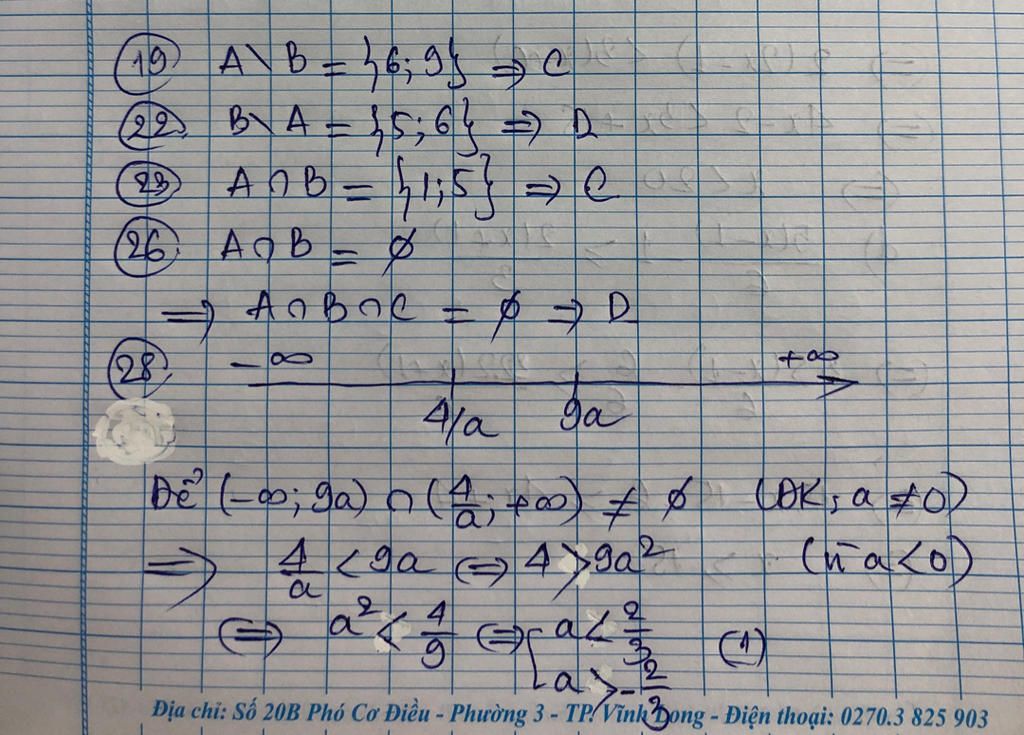 19 A\B = {6; 9} => C
22 B\A = {5; 6} => D
23 A∩B = {1; 5} => C
26 A∩B = ∅
=> A∩B∩C = ∅ => D
28 -∞ +∞
4/a 9a
Để (-∞; 9a) ∩ (4/a; +∞) ≠ ∅ (ĐK: a ≠ 0)
=> 4/a < 9a <=> 4 > 9a² (vì a < 0)
<=> a² < 4/9 <=> [ a < 2/3 (1)
a > -2/3
Địa chỉ: Số 20B Phó Cơ Điều - Phường 3 - TP. Vĩnh Long - Điện thoại: 0270.3 825 903